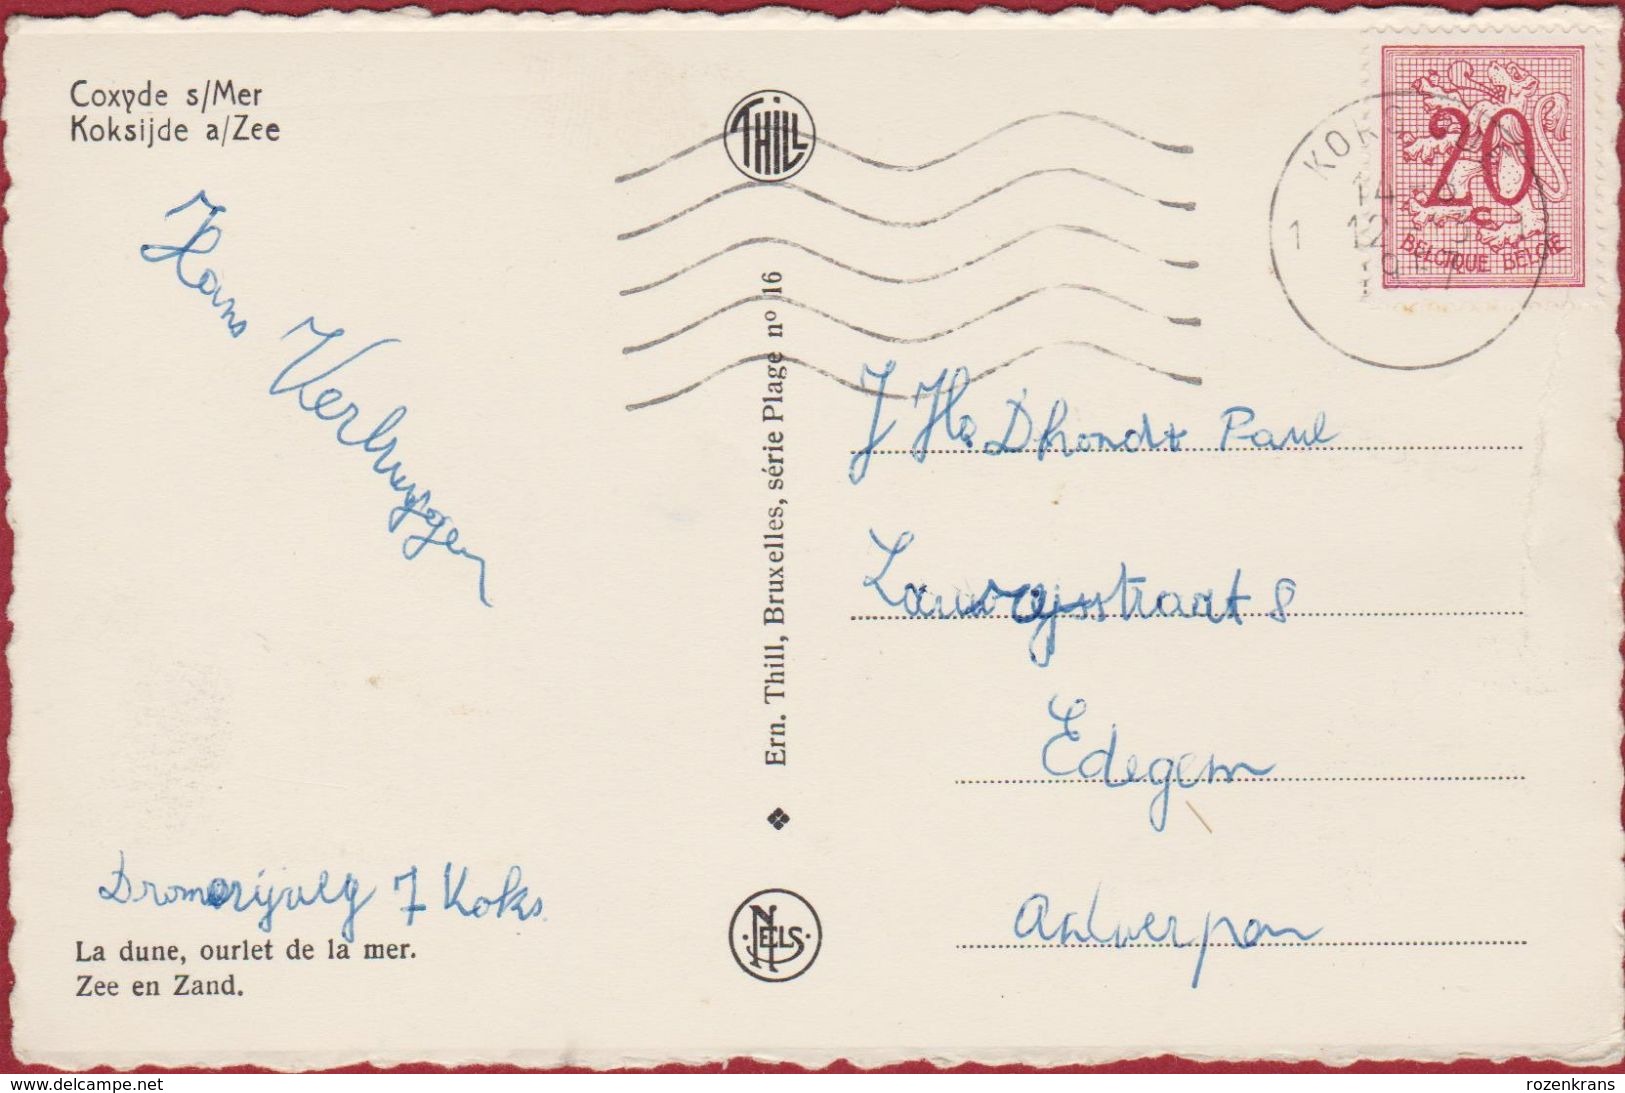 Coxyde s/Mer
Koksijde a/Zee
Hans Verbruggen
Dromerijweg 7 Koks.
La dune, ourlet de la mer.
Zee en Zand.
THILL
Ern. Thill, Bruxelles, série Plage nº 16
NELS
20c
BELGIQUE BELGIE
1
J Hr. Dhondt Paul
8
Edegem
Antwerpen
Visit www.delcampe.net
rozenkrans